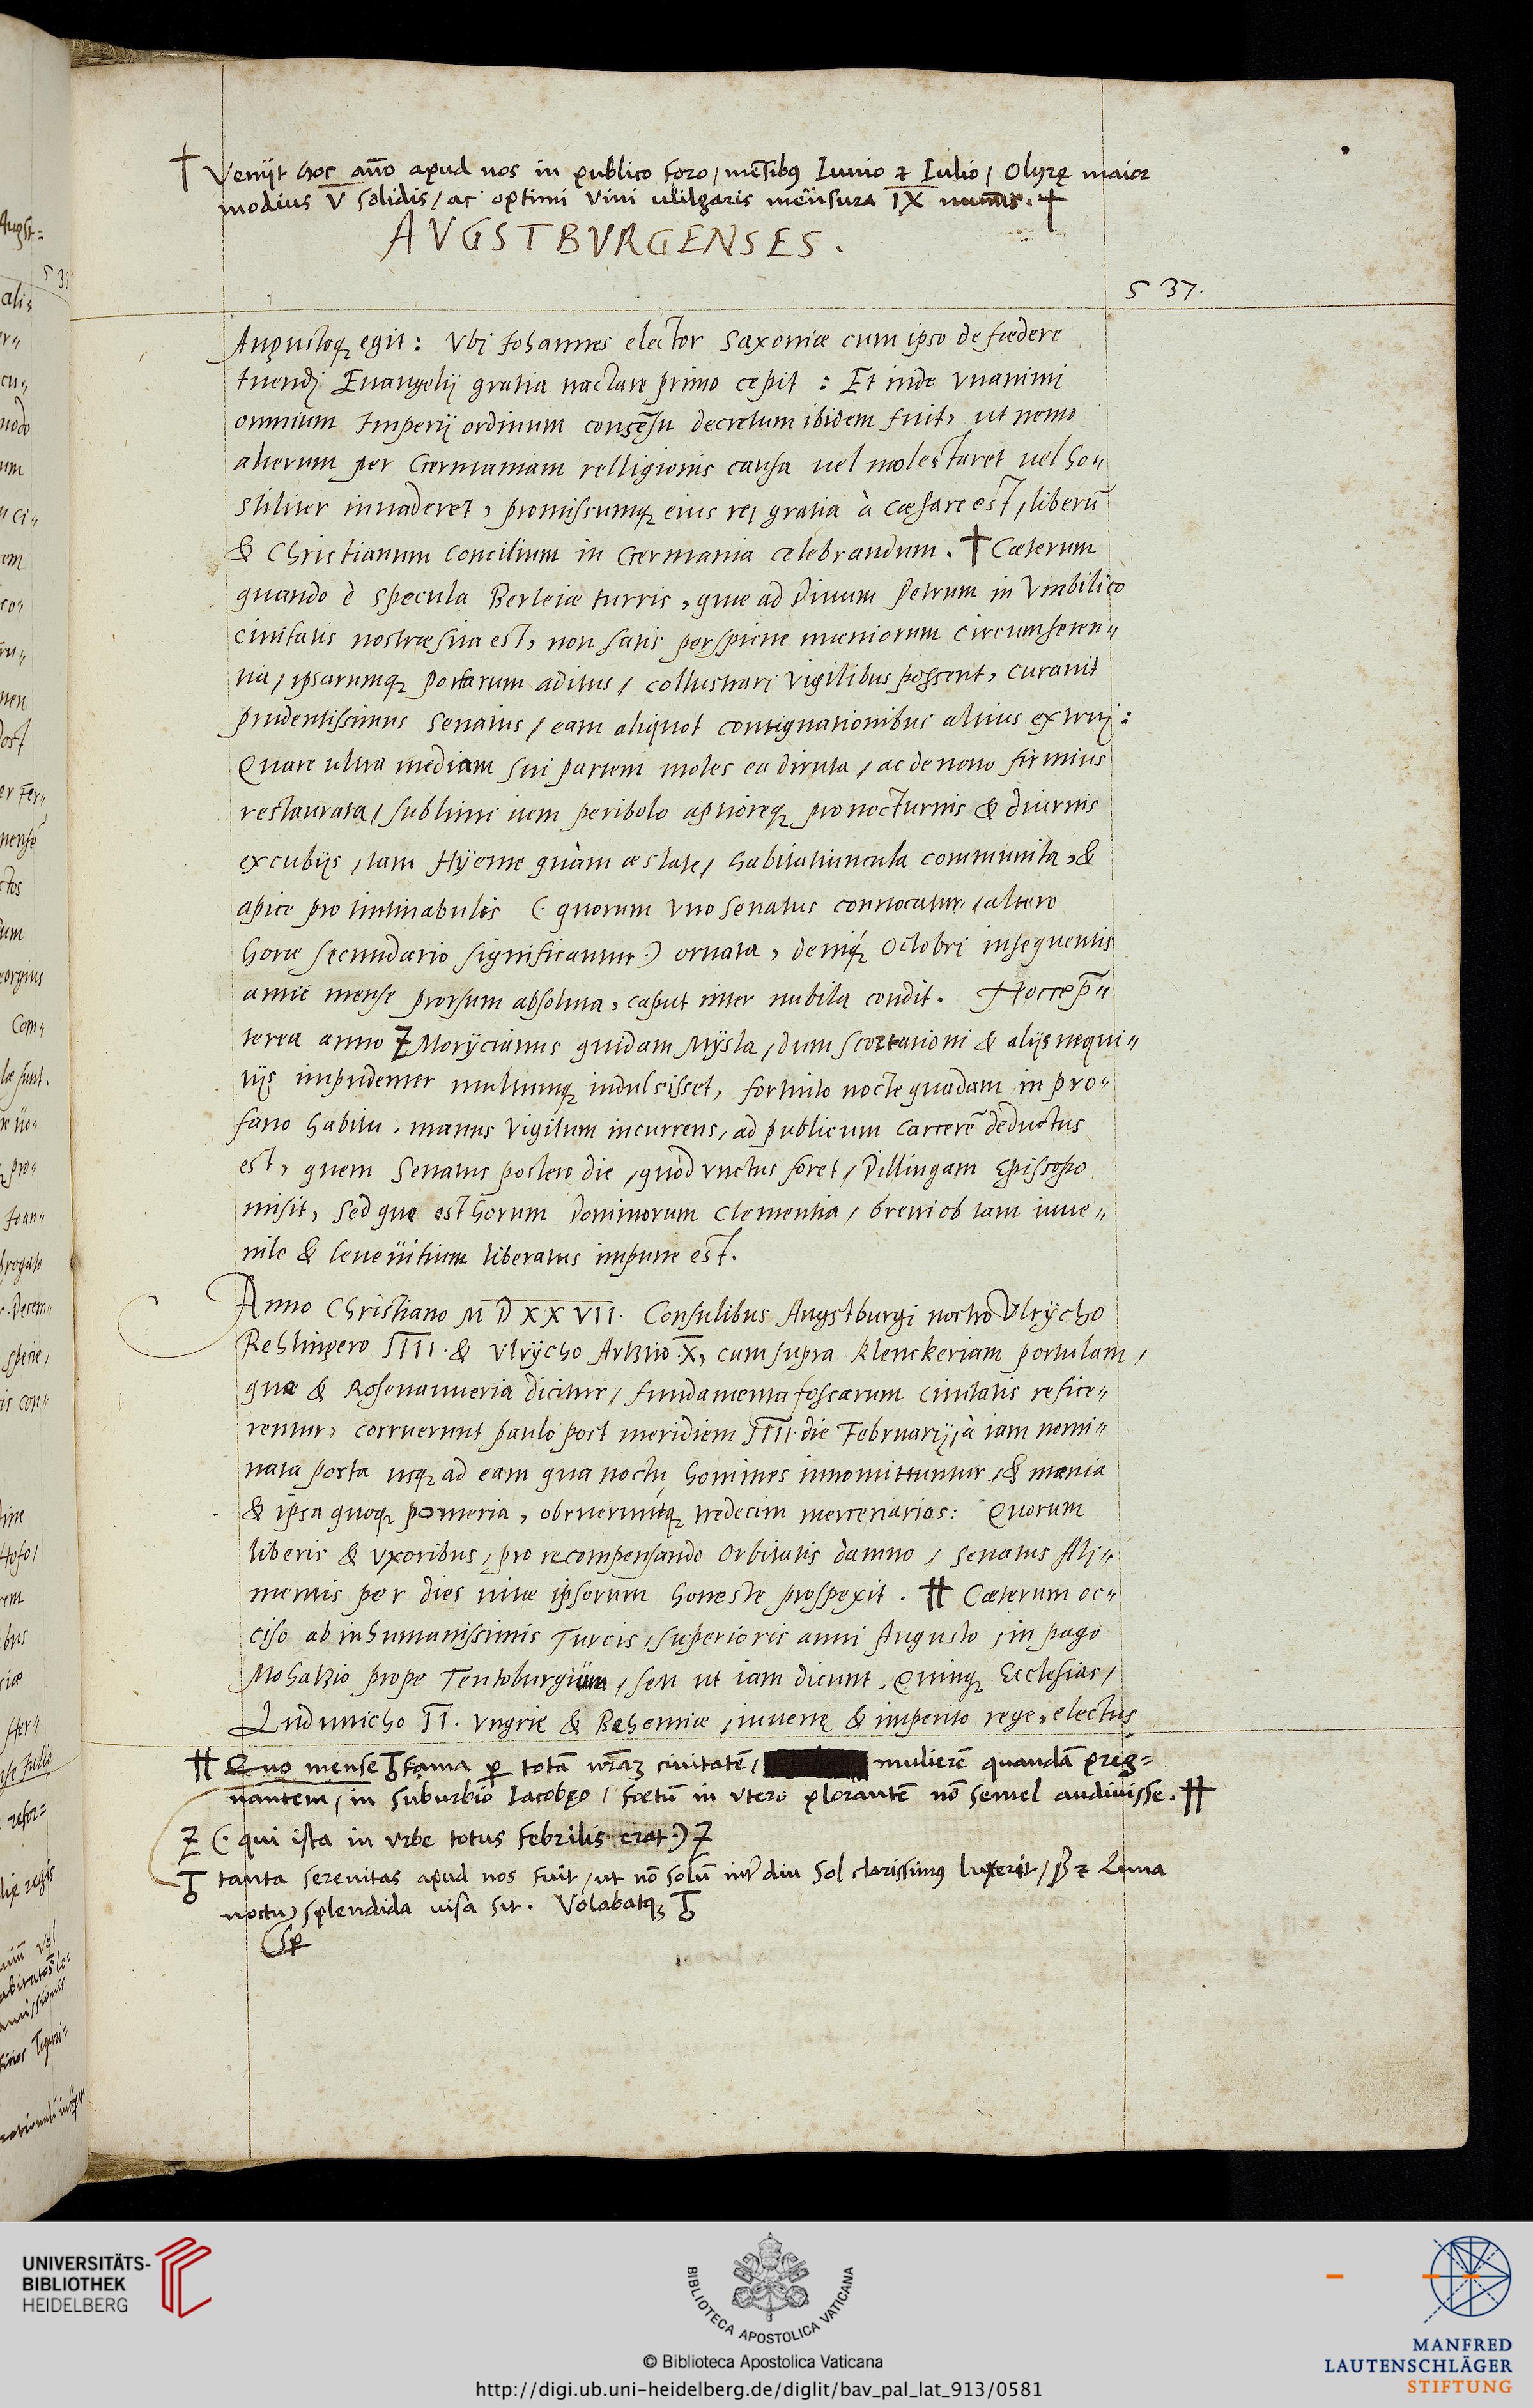 † Veniit hoc año apud nos in publico foro, mẽsibus Iunio et Iulio, Olyrę maior
modius V solidis, ac optimi vini vulgaris mensura IX num̃is. †
AVGSTBVRGENSES.
537.
Augustoq; egit: Vbi Iohannes elector Saxoniæ cum ipso de fœdere
tuendi Euangelij gratia tractare primo cepit: Et inde vnanimi
omnium Imperij ordinum consẽsu decretum ibidem fuit, ut nemo
alterum per Germaniam relligionis causa uel molestaret uel ho-
stiliter inuaderet, promissumq; eius rei gratia à Cæsare est, liberũ
& Christianum Concilium in Germania celebrandum. † Cæterum
quando è specula Berleiæ turris, quæ ad Diuum Petrum in Vmbilico
ciuitatis nostræ sita est, non satis perspicue mœniorum circumferen-
tia, ipsarumq; portarum aditus, collustrari vigilibus possent, curauit
prudentissimus Senatus, eam aliquot contignationibus altius extrui:
Quare ultra mediam sui partem moles ea diruta, ac de nouo firmius
restaurata, sublimi item peribolo aptioreq; pro nocturnis & diurnis
excubijs, tam Hyeme quàm æstate, habitatiuncula communita, &
apice pro tintinabulis (quorum vno Senatus conuocatur, altero
horæ secundario significantur) ornata, deniq; Octobri insequentis
anni mense prorsum absoluta, caput inter nubila condit. Hoc rep̃-
terea anno Z Morycianus quidam Mysta, dum scortationi & alijs nequi-
tijs impudenter multumq; indulsisset, fortuito nocte quadam in pro-
fano habitu, manus vigilum incurrens, ad publicum carcerẽ deductus
est, quem Senatus postero die, quòd vnctus foret, Dillingam Episcopo
misit, sed quę est horum Dominorum clementia, breui ob tam iuue-
nile & leue uitium liberatus impune est.
Anno Christiano M D XXVII. Consulibus Augstburgi nostro Vlrycho
Rehlingero IIII. & Vlrycho Artzno X, cum supra Klenckeriam portulam,
quæ & Rosenauueria dicitur, fundamenta fossarum ciuitatis refice-
rentur, corruerunt paulo post meridiem IIII. die Februarij, à iam nomi-
nata porta usq; ad eam qua noctu homines innomittuntur, & mœnia
& ipsa quoq; pomeria, obrueruntq; tredecim mercenarios: Quorum
liberis & vxoribus, pro recompensando Orbitatis damno, Senatus Ali-
mentis per dies uitæ ipsorum honeste prospexit. # Cæterum oc-
ciso ab inhumanissimis Turcis, superioris anni Augusto, in pago
Mohatzio prope Teutoburgium, seu ut iam dicunt, Quinq; Ecclesias,
Ludouicho II. Vngrię & Bohemiæ, iuuenę & imperito rege, electus
# Quo mense fama per totã nr̃aȝ ciuitatẽ, mulierẽ quandã preg-
nantem, in suburbio Iacobęo, fœtũ in vtero plorantẽ nõ semel audiuisse. #
Z (qui ista in vrbe totus febrilis erat) Z
tanta serenitas apud nos fuit, ut nõ solũ interdiu Sol clarissimus luxerit, sed et Luna
noctu, splendida uisa sit. Volabatq;
UNIVERSITÄTS-
BIBLIOTHEK
HEIDELBERG
BIBLIOTECA APOSTOLICA VATICANA
© Biblioteca Apostolica Vaticana
http://digi.ub.uni-heidelberg.de/diglit/bav_pal_lat_913/0581
MANFRED
LAUTENSCHLÄGER
STIFTUNG